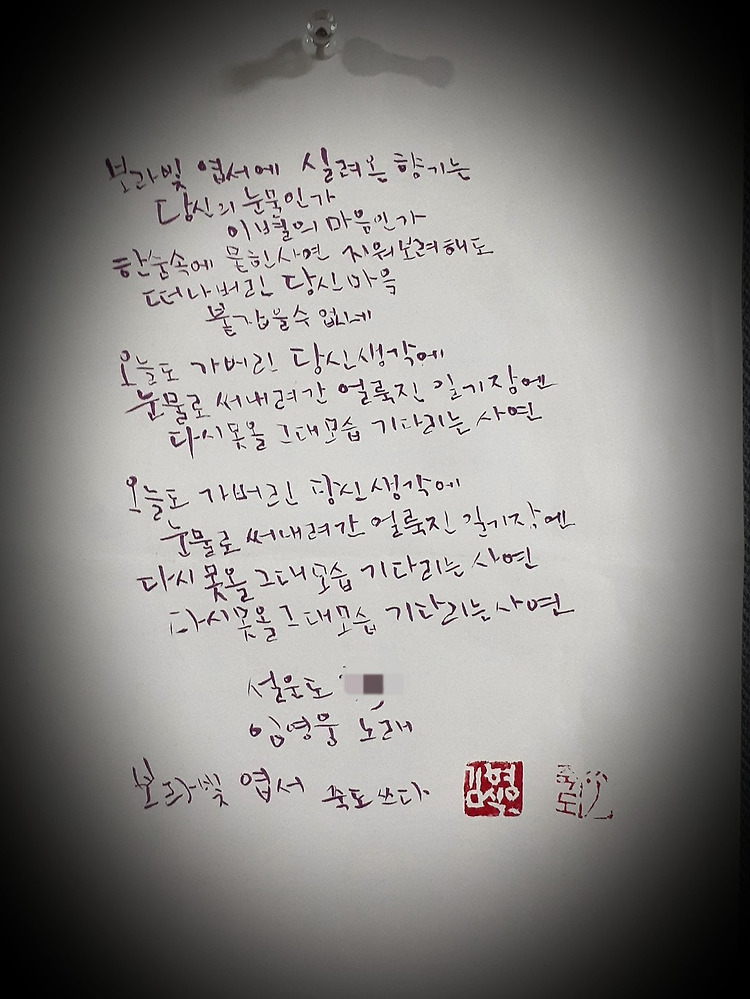 보라빛 엽서에 실려온 향기는
당신의 눈물인가
이별의 마음인가
한숨속에 뭍힌사연 지워보려해도
떠나버린 당신마음
붙잡을수 없네
오늘도 가버린 당신생각에
눈물로 써내려간 얼룩진 일기장엔
다시못올 그대모습 기다리는 사연
오늘도 가버린 당신생각에
눈물로 써내려간 얼룩진 일기장엔
다시못올 그대모습 기다리는 사연
다시못올 그대모습 기다리는 사연
설운도
임영웅 노래
보라빛 엽서 죽도쓰다
죽도